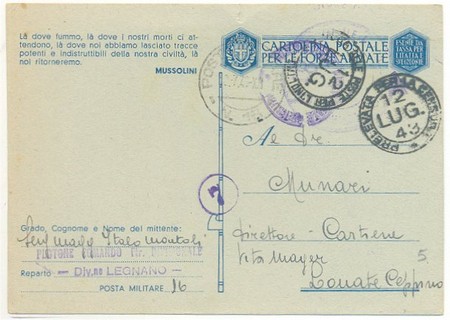 Là dove fummo, là dove i nostri morti ci at-
tendono, là dove noi abbiamo lasciato tracce
potenti e indistruttibili della nostra civiltà, là
noi ritorneremo.
MUSSOLINI
CARTOLINA POSTALE
PER LE FORZE ARMATE
12 LUG. 43
PRELEVATA
12
LUG.
43
7
Munari
Direttore - Cartiere
Vita Mayer
Lonate Ceppino
5
Grado, Cognome e Nome del mittente:
Italo
PLOTONE COMANDO
Reparto - Div.ne LEGNANO -
POSTA MILITARE 16